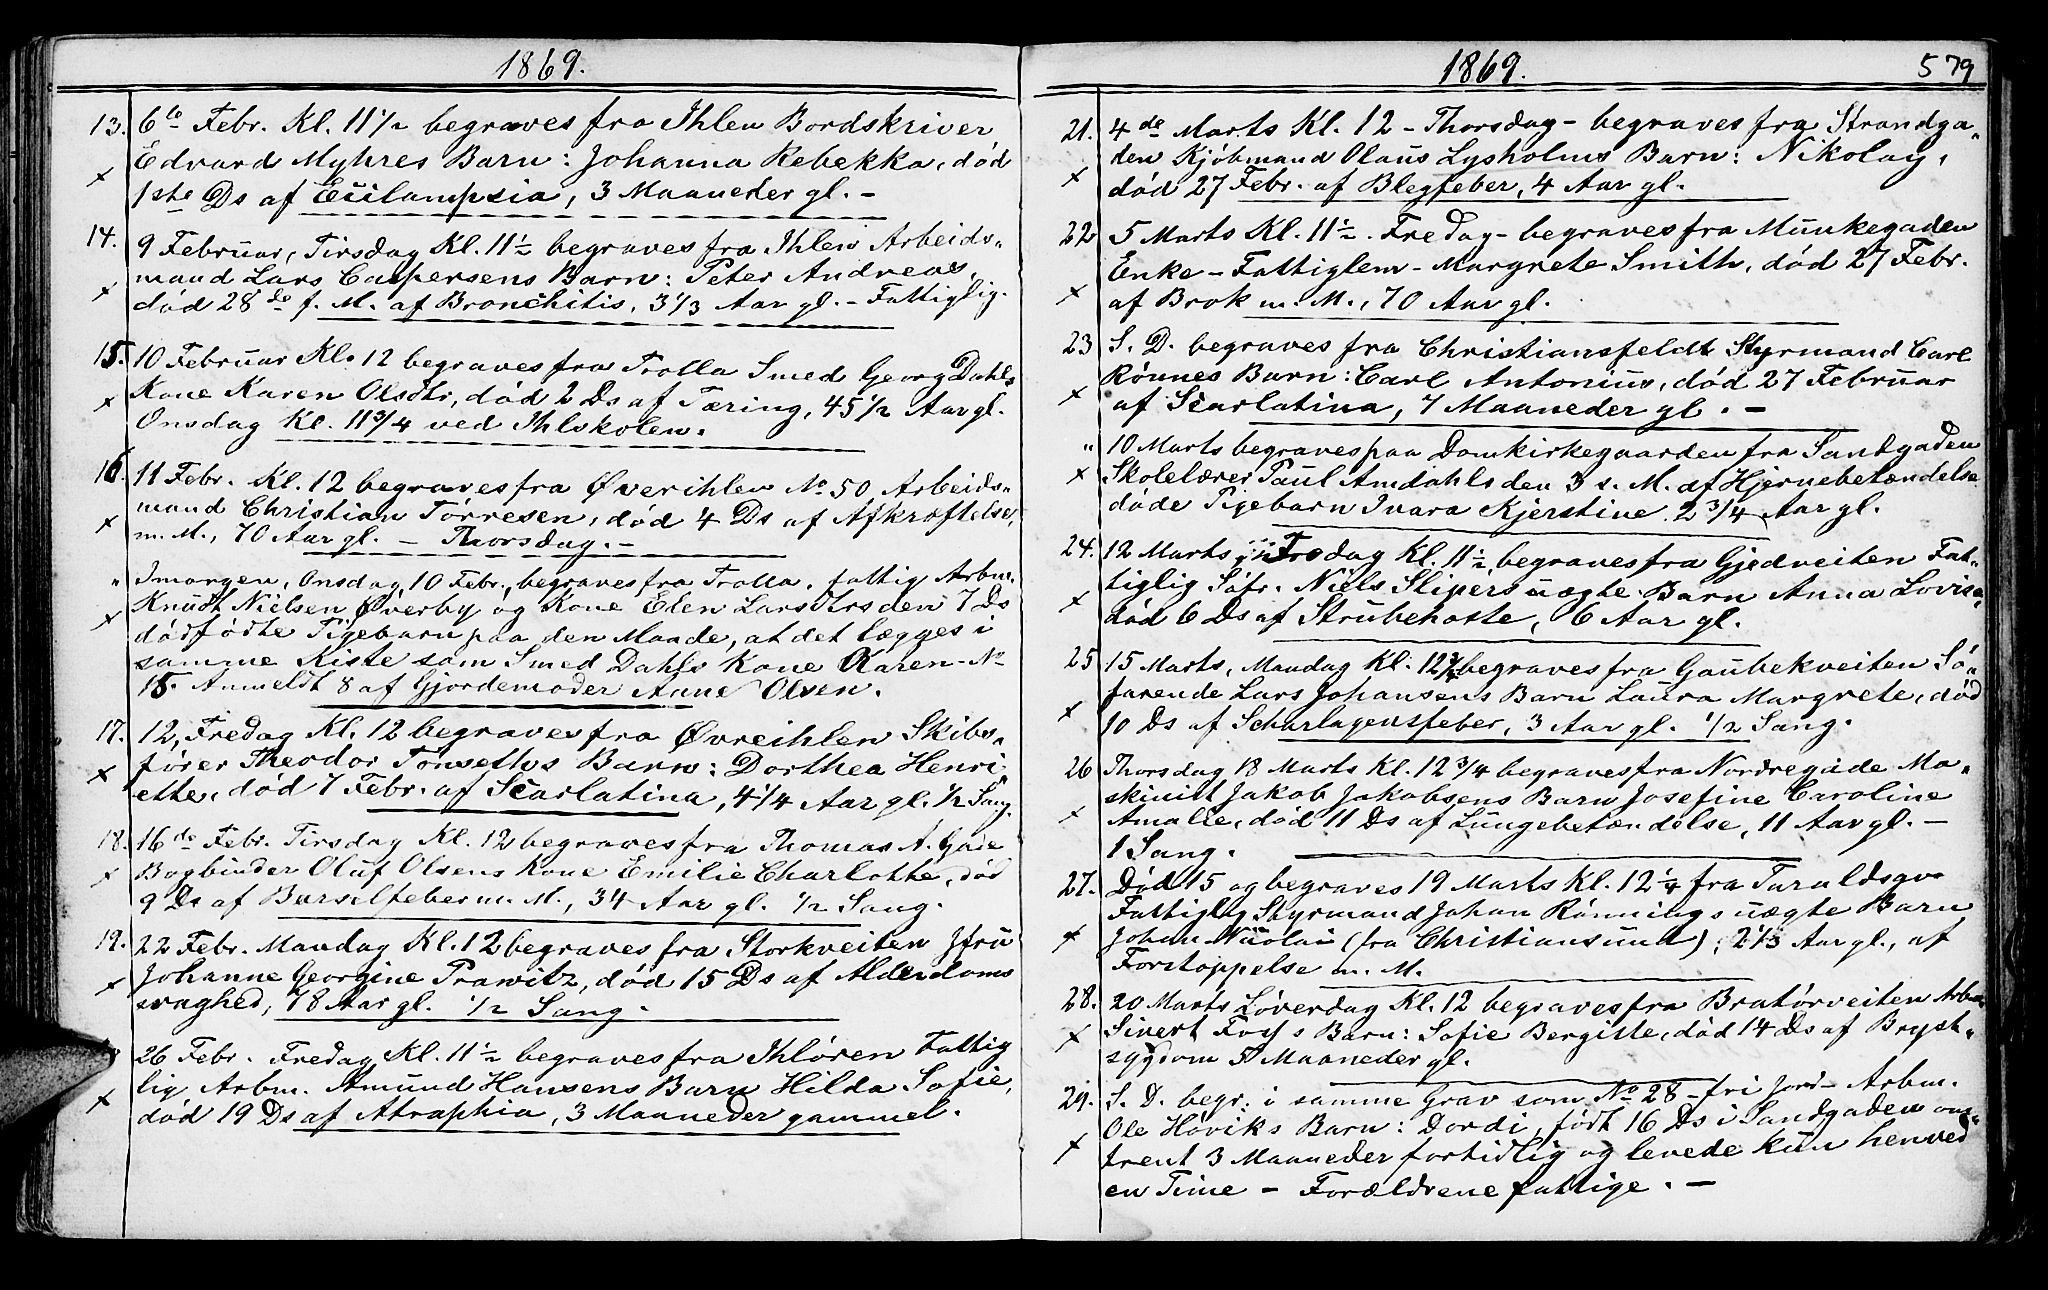 1869.
13. 6te Febr. Kl. 11 1/2 begraves fra Ihlen Bordskriver
Edvard Myhres Barn: Johanna Rebekka, død
1ste Ds af Eclampsia, 3 Maaneder gl. -
14. 9 Februar, Tirsdag Kl. 11 1/2 begraves fra Ihlen Arbeids-
mand Lars Caspersens Barn: Peter Andreas,
død 28de f. M. af Bronchitis, 3 1/3 Aar gl. - Fattiglig.
15. 10 Februar Kl. 12 begraves fra Trolla Smed Georg Dahls
Kone Karen Olsdtr, død 2 Ds af Tæring, 45 1/2 Aar gl.
Onsdag Kl. 11 3/4 ved Ihlskolen.
16. 11 Febr. Kl. 12 begraves fra Øverihlen No 50 Arbeids-
mand Christian Torresen, død 4 Ds af Afkræftelse
m. M., 70 Aar gl. - Thorsdag. -
" Imorgen, Onsdag 10 Febr., begraves fra Trolla, fattig Arbm.
Knudt Nielsen Øverby og Kone Eden Larsdtrs den 7 Ds
dødfødte Pigebarn paa den Maade, at det lægges i
samme Kiste som Smed Dahls Kone Karen - No
15. Anmeldt 8 af Gjordemoder Anne Olsen.
17. 12, Fredag Kl. 12 begraves fra Øvreihlen Skibs-
fører Theodor Tonseths Barn: Dorthea Henri-
ette, død 7 Febr. af Scarlatina, 4 1/4 Aar gl. 1/2 Sang.
18. 16de Febr. Tirsdag Kl. 12 begraves fra Thomas A. Gade
Bogbinder Oluf Olsens Kone Emilie Charlotte, død
9 Ds af Barselfeber m. M., 34 Aar gl. 1/2 Sang.
19. 22 Febr. Mandag Kl. 12 begraves fra Storkveiten Jfru
Johanne Georgine Prawitz, død 15 Ds af Alderdoms
svaghed, 78 Aar gl. 1/2 Sang.
26 Febr. Fredag Kl. 11 1/2 begraves fra Ihløren Fattig
lig Arbm. Amund Hansens Barn Hilda Sofie,
død 19 Ds af Atraphia, 3 Maaneder gammel.
1869. 579
21. 4de Marts Kl. 12 - Thorsdag - begraves fra Strandga-
den Kjøbmand Olaus Lysholms Barn: Nikolay,
død 27 Febr. af Blegfeber, 4 Aar gl.
22 5 Marts Kl. 11 1/2. Fredag - begraves fra Munkegaden
Enke - Fattiglem - Margrete Smith, død 27 Febr.
af Brok m. M., 70 Aar gl.
23 S. D. begraves fra Christiansfeldt Styrmand Carl
Rønnes Barn: Carl Antonius, død 27 Februar
af Scarlatina, 7 Maaneder gl. -
" 10 Marts begraves paa Domkirkegaarden fra Sandgaden
Skolelærer Paul Amdahls den 3 s. M. af Hjernebetændelse
døde Pigebarn Ivara Kjerstine 2 3/4 Aar gl.
24. 12 Marts, Fredag Kl. 11 1/2 begraves fra Gjedveiten Fat-
tiglig Søfr. Niels Slipers uægte Barn Anna Lovisa,
død 6 Ds af Strubehoste, 6 Aar gl.
25 15 Marts, Mandag Kl. 12 3/4 begraves fra Gaubekveiten Sø-
farende Lars Johansens Barn Laura Margrete, død
10 Ds af Scharlagensfeber, 3 Aar gl. 1/2 Sang.
26 Thorsdag 18 Marts Kl. 12 3/4 begraves fra Nordregade Ma-
skinist Jakob Jakobsens Barn Josefine Caroline
Amalie, død 11 Ds af Lungebetændelse, 11 Aar gl. -
1 Sang.
27. Død 15 og begraves 19 Marts Kl. 12 1/4 fra Taraldsgv
Fattiglig Styrmand Johan Rønnings uægte Barn
Johan Nicolai (fra Christiansund), 2 1/3 Aar gl., af
Forstoppelse m. M.
28. 20 Marts Løverdag Kl. 12 begraves fra Bratørveiten Arbm.
Sivert Foss's Barn: Sofie Bergitte, død 14 Ds af Bryst-
sygdom 5 Maaneder gl.
29. S. D. begr. i samme Grav som No 28 - fri Jord - Arbm.
Ole Høviks Barn: Dordi, født 16 Ds i Sandgaden om-
trent 3 Maaneder fortidlig og levede kun henved
en Time - Forældrene fattige. -